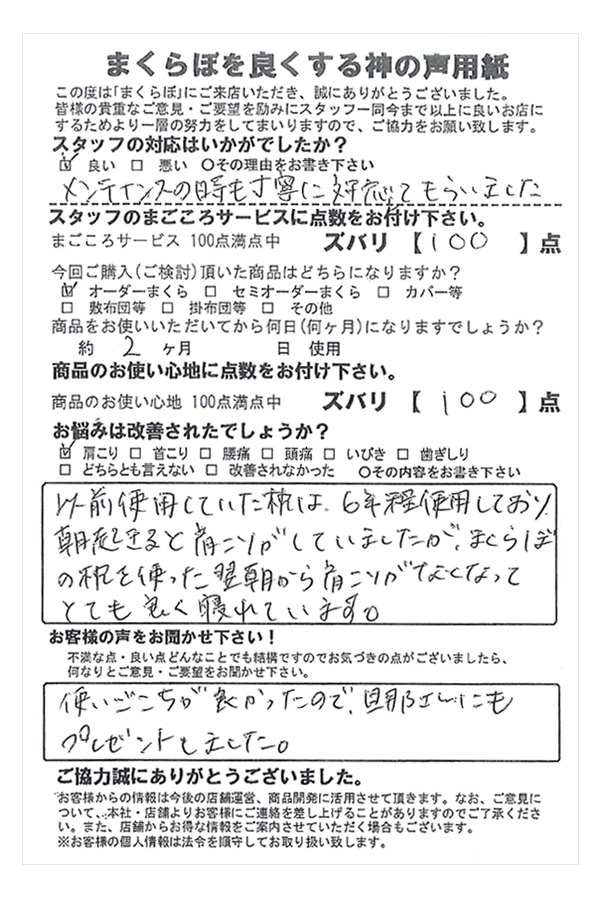 まくらぼを良くする神の声用紙
この度は「まくらぼ」にご来店いただき、誠にありがとうございました。
皆様の貴重なご意見・ご要望を励みにスタッフ一同今まで以上に良いお店に
するためより一層の努力をしてまいりますので、ご協力をお願い致します。
スタッフの対応はいかがでしたか？
☑ 良い □ 悪い ○その理由をお書き下さい
メンテナンスの時も丁寧に対応してもらいました
スタッフのまごころサービスに点数をお付け下さい。
まごころサービス 100点満点中 ズバリ 【100 】点
今回ご購入(ご検討)頂いた商品はどちらになりますか？
☑ オーダーまくら □ セミオーダーまくら □ カバー等
□ 敷布団等 □ 掛布団等 □ その他
商品をお使いいただいてから何日(何ヶ月)になりますでしょうか？
約 2 ヶ月 日 使用
商品のお使い心地に点数をお付け下さい。
商品のお使い心地 100点満点中 ズバリ 【 100 】点
お悩みは改善されたでしょうか？
☑ 肩こり □ 首こり □ 腰痛 □ 頭痛 □ いびき □ 歯ぎしり
□ どちらとも言えない □ 改善されなかった ○その内容をお書き下さい
以前使用していた枕は、6年程使用しており、
朝起きると肩こりがしていましたが、まくらぼ
の枕を使った翌朝から肩こりがなくなって
とても良く寝れています。
お客様の声をお聞かせ下さい！
不満な点・良い点どんなことでも結構ですのでお気づきの点がございましたら、
何なりとご意見・ご要望をお聞かせ下さい。
使いごこちが良かったので、旦那さんにも
プレゼントしました。
ご協力誠にありがとうございました。
お客様からの情報は今後の店舗運営、商品開発に活用させて頂きます。なお、ご意見に
ついて、本社・店舗よりお客様にご連絡を差し上げることがありますのでご了承くださ
い。また、店舗からお得な情報をご案内させていただく場合もございます。
※お客様の個人情報は法令を順守してお取り扱い致します。